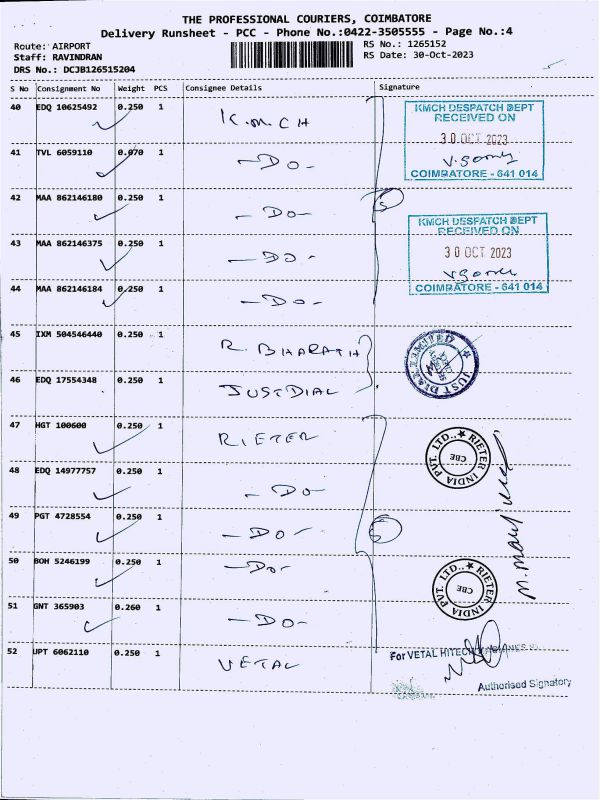 THE PROFESSIONAL COURIERS, COIMBATORE
Delivery Runsheet - PCC - Phone No.:0422-3505555 - Page No.:4
Route: AIRPORT RS No.: 1265152
Staff: RAVINDRAN RS Date: 30-Oct-2023
DRS No.: DCJB126515204
S No Consignment No Weight PCS Consignee Details Signature
40 EDQ 10625492 0.250 1 K.M.C.H
KMCH DESPATCH DEPT
RECEIVED ON
30 OCT 2023
COIMBATORE - 641 014
41 TVL 6059110 0.070 1 -Do-
42 MAA 862146180 0.250 1 -Do-
5
KMCH DESPATCH DEPT
RECEIVED ON
30 OCT 2023
COIMBATORE - 641 014
43 MAA 862146375 0.250 1 -Do-
44 MAA 862146184 0.250 1 -Do-
45 IXM 504546440 0.250 1 R. BHARATH
JUST DIAL LIMITED
46 EDQ 17554348 0.250 1 JUSTDIAL
47 HGT 100600 0.250 1 RIETER
RIETER INDIA PVT. LTD.,
CBE
48 EDQ 14977757 0.250 1 -Do-
49 PGT 4728554 0.250 1 -Do-
50 BOH 5246199 0.250 1 -Do-
RIETER INDIA PVT. LTD.,
CBE
51 GNT 365903 0.260 1 -Do-
52 UPT 6062110 0.250 1 VETAL
For VETAL HITECH
Authorised Signatory